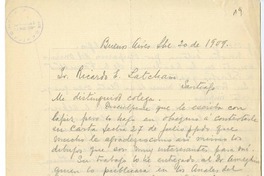 19
Buenos Aires Sbe 20 de 1909.
Sr. Ricardo E. Latcham
Santiago
Mi distinguido colega:
Discúlpeme que le escriba con
lápiz pero lo hago en obsequio á contestarle
su carta fecha 27 de julio ppdo. que
mucho le agradezco como así mismo los
dibujos que son muy interesantes para mí.
Su trabajo lo he entregado al Dr. Ameghi-
quien lo publicará en los Anales del